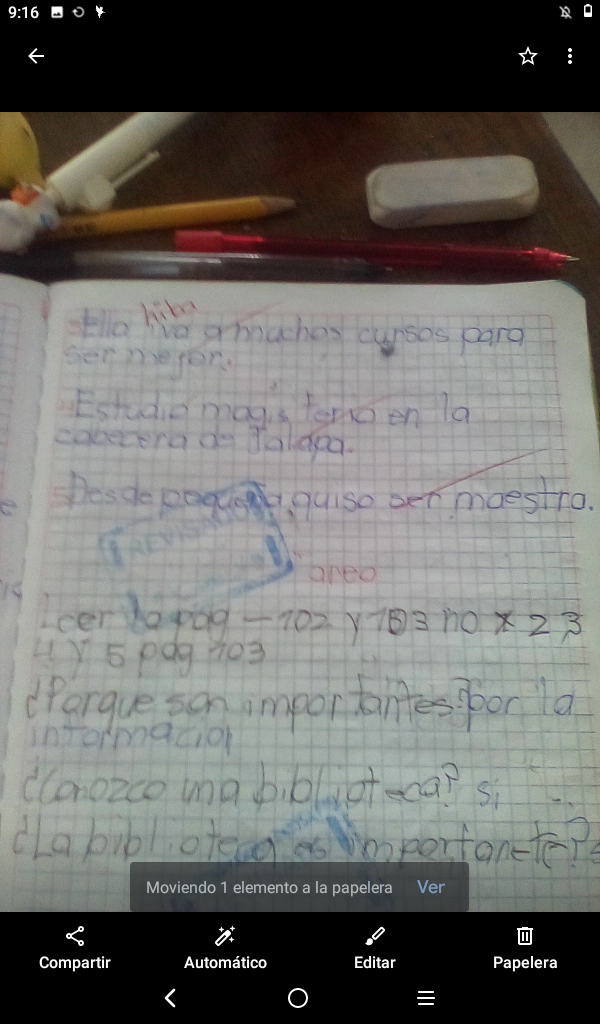 9:16
hiba
Ella iva a muchos cursos para
ser mejor.
Estudio magisterio en la
cabecera de Jalapa.
Desde pequeña quiso ser maestra.
REVISADO
Tarea
Leer la pag - 102 y 103 no x 2 3
4 y 5 pag 103
¿Porque son importantes? por la
informacion
¿Conozco una biblioteca? si
¿La biblioteca es importante?
Moviendo 1 elemento a la papelera Ver
Compartir Automático Editar Papelera